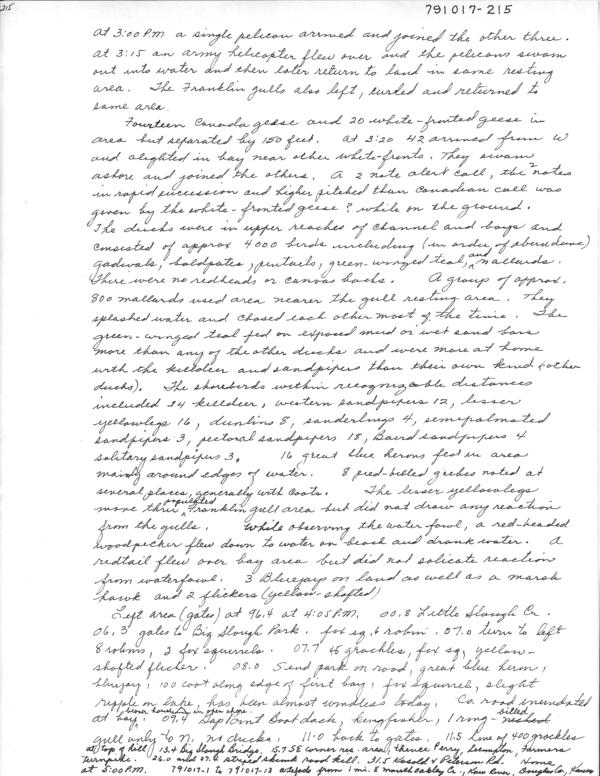 215
791017-215
at 3:00 P.M a single pelican arrived and joined the other three.
at 3:15 an army helicopter flew over and the pelicans swam
out into water and then later return to land in same resting
area. The Franklin gulls also left, circled and returned to
same area.
Fourteen Canada geese and 20 white-fronted geese in
area but separated by 150 feet. at 3:20 42 arrived from W
and alighted in bay near other white-fronts. They swam
ashore and joined the others. A 2 note alert call, the 2 notes
in rapid succession and higher pitched than Canadian call was
given by the white-fronted geese? while on the ground.
The ducks were in upper reaches of channel and bays and
consisted of approx 4000 birds including (in order of abundance)
gadwals, baldpates, pintails, green-winged teal, and mallards.
There were no redheads or canvas backs. A group of approx.
800 mallards used area nearer the gull resting area. They
splashed water and chased each other most of the time. The
green-winged teal fed on exposed mud or wet sand bars
more than any of the other ducks and were more at home
with the killdeer and sandpipers than their own kind (other
ducks). The shorebirds within recognizable distances
included 24 killdeer, western sandpipers 12, lesser
yellowlegs 16, dunlins 8, sanderlings 4, semipalmated
sandpipers 3, pectoral sandpipers 18, Baird sandpipers 4
solitary sandpipers 3. 16 great blue herons fed in area
mainly around edges of water. 8 pied-billed grebes noted at
several places, generally with coots. The lesser yellowlegs
move thru populated Franklin gull area but did not draw any reaction
from the gulls. While observing the water fowl, a red-headed
woodpecker flew down to water on beach and drank water. A
redtail flew over bay area but did not solicate reaction
from waterfowl. 3 Bluejays on land as well as a marsh
hawk and 2 flickers (yellow-shafted)
Left area (gates) at 96.4 at 4:05 P.M. 00.8 Little Slough Cr.
06.3 gates to Big Slough Park. fox sq. 6 robin. 07.0 turn to left
8 robins, 2 fox squirrels. 07.7 45 grackles, fox sq, yellow-
shafted flicker. 08.0 S end park on road, great blue heron,
bluejay, 100 coot along edge of first bay, fox squirrel, slight
ripple on lake, has been almost windless today. Co. road inundated
at bay. 09.4 Sap Point Boat dock, kingfisher, 1 ring-billed
gull only to N, no ducks. 11.0 back to gate. 11.5 line of 400 grackles
at top of hill 13.4 Big Slough Bridge. 15.7 SE corner res. area, thence Perry, Lecompton, Farmers
Turnpike. 26.0 and 07.6 striped skunk road kill. 31.5 Kasold & Peterson Rd. Home
at 5:00 P.M. 791017-1 to 791017-13 artefacts from 1 mi. E mouth Oakley Cr., Kaw River, Douglas Co, Kansas